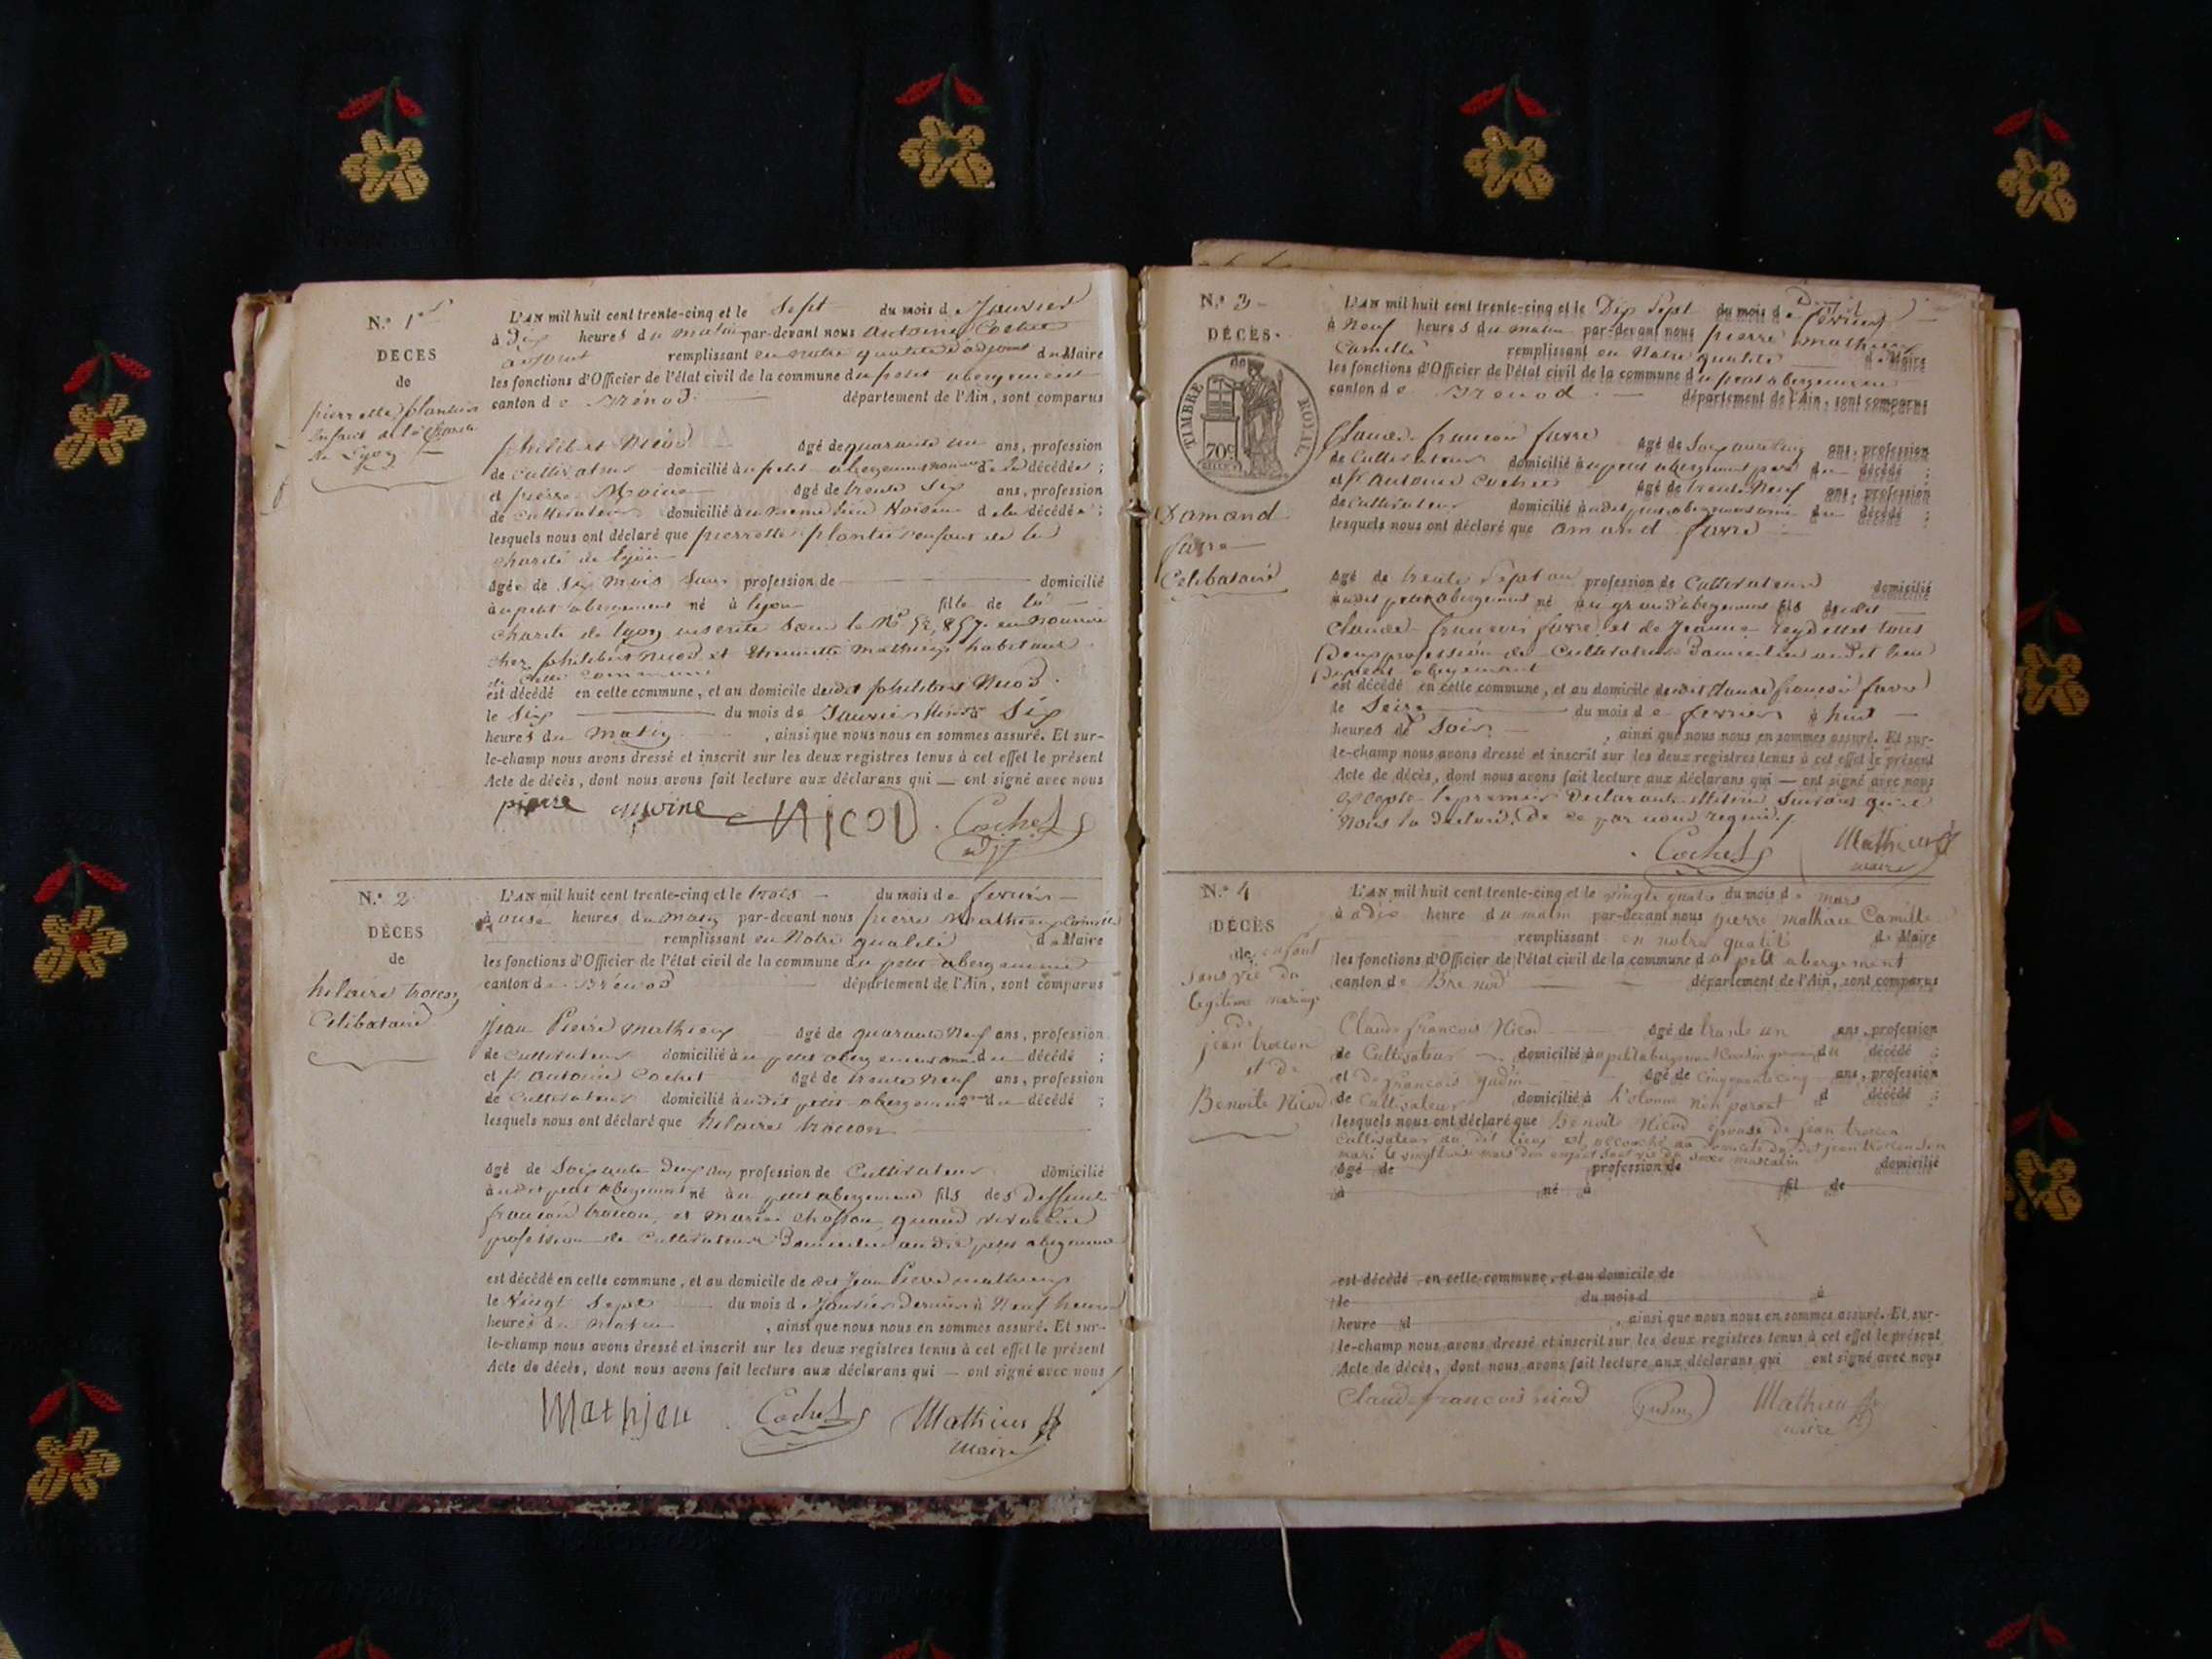 N.o 1er
DECES
de
pierrette plantier
enfant de la Charité
de Lyon
L'AN mil huit cent trente-cinq et le Sept du mois de Janvier
à Dix heures du matin par-devant nous Antoine Cochet
adjoint remplissant en notre qualité d'adjoint du Maire
les fonctions d'Officier de l'état civil de la commune du petit abergement
canton de Brénod département de l'Ain, sont comparus
philibert Nicod agé de quarante un ans, profession
de Cultivateur domicilié au petit abergement de la décédée ;
et pierre Moine agé de trente Six ans, profession
de cultivateur domicilié au même lieu Voisin de la décédée ;
lesquels nous ont déclaré que pierrette plantier enfant de la
charité de lyon
agée de Six mois Sans profession de domicilié
au petit abergement né à lyon fille de la
Charité de lyon inscrite Sous le N° en Nourrice
chez philibert Nicod et Mathieu habitant
de cette commune
est décédé en cette commune, et au domicile dudit philibert Nicod
le Six du mois de Janvier à Six
heures du Matin, ainsi que nous nous en sommes assuré. Et sur-
le-champ nous avons dressé et inscrit sur les deux registres tenus à cet effet le présent
Acte de décès, dont nous avons fait lecture aux déclarans qui ont signé avec nous
pierre moine Nicod Cochet
adj
N.o 2
DÉCES
de
hilaire trocon
Célibataire
L'AN mil huit cent trente-cinq et le trois du mois de fevrier
à onze heures du matin par-devant nous pierre Mathieu Camille
remplissant en Notre qualité de Maire
les fonctions d'Officier de l'état civil de la commune du petit abergement
canton de Brénod département de l'Ain, sont comparus
Jean Pierre Mathieu agé de quarante Neuf ans, profession
de Cultivateur domicilié au petit abergement ami du décédé ;
et antoine Cochet agé de trente Neuf ans, profession
de Cultivateur domicilié audit petit abergement du décédé ;
lesquels nous ont déclaré que hilaire trocon
agé de Soixante Deux ans profession de Cultivateur domicilié
audit petit abergement né au petit abergement fils des deffunts
françois trocon et marie quand vivaient
profession de Cultivateurs Domiciliés audit petit abergement
est décédé en cette commune, et au domicile de dit Jean Pierre mathieu
le Vingt Sept du mois de Janvier Dernier à Neuf heures
heures du matin, ainsi que nous nous en sommes assuré. Et sur-
le-champ nous avons dressé et inscrit sur les deux registres tenus à cet effet le présent
Acte de décès, dont nous avons fait lecture aux déclarans qui ont signé avec nous
Mathieu Cochet Mathieu
Maire
N.o 3
DÉCES.
de
TIMBRE ROYAL
70c
Damand
favre
Celibataire
L'AN mil huit cent trente-cinq et le Dix Sept du mois de fevrier
à Neuf heures du matin par-devant nous pierre mathieu
Camille remplissant en Notre qualité de Maire
les fonctions d'Officier de l'état civil de la commune du petit abergement
canton de Brenod département de l'Ain, sont comparus
Claude françois favre agé de Soixante Cinq ans, profession
de Cultivateur domicilié au petit abergement père du décédé ;
et antoine Cochet agé de trente Neuf ans, profession
de Cultivateur domicilié audit petit abergement ami du décédé ;
lesquels nous ont déclaré que amand favre
agé de trente Sept ans profession de Cultivateur domicilié
audit petit abergement né au grand abergement fils dudit
Claude françois favre et de Jeanne Reydellet tous
Deux profession de Cultivateurs Domiciliés audit lieu
Du petit abergement
est décédé en cette commune, et au domicile dudit Claude françois favre
le Seize du mois de fevrier à huit
heures du Soir, ainsi que nous nous en sommes assuré. Et sur-
le-champ nous avons dressé et inscrit sur les deux registres tenus à cet effet le présent
Acte de décès, dont nous avons fait lecture aux déclarans qui ont signé avec nous
excepté le premier Declarant
Nous l'a déclaré. De ce par nous requis
Cochet Mathieu
maire
N.o 4
DÉCES
de enfant
sans vie du
legitime mariage
de
jean trocon
et de
Benoite Nicod
L'AN mil huit cent trente-cinq et le vingt quatre du mois de mars
à dix heure du matin par-devant nous pierre mathieu Camille
remplissant en notre qualité de Maire
les fonctions d'Officier de l'état civil de la commune du petit abergement
canton de Brenod département de l'Ain, sont comparus
Claude françois Nicod agé de trante un ans, profession
de Cultivateur domicilié au petit abergement Cousin germain du décédé ;
et de françois gudin agé de Cinquante cinq ans, profession
de Cultivateur domicilié à non parent d décédé ;
lesquels nous ont déclaré que Benoite Nicod épouse de jean trocon
Cultivateur au dit lieux est accouchée au domicile du dit jean trocon son
mari le vingt trois mars d'un enfant sans vie du sexe masculin
agé de profession de domicilié
à né à fil de
est décédé en cette commune, et au domicile de
le du mois d à
heure d, ainsi que nous nous en sommes assuré. Et sur-
le-champ nous avons dressé et inscrit sur les deux registres tenus à cet effet le présent
Acte de décès, dont nous avons fait lecture aux déclarans qui ont signé avec nous
Claude francois nicod Gudin Mathieu
maire